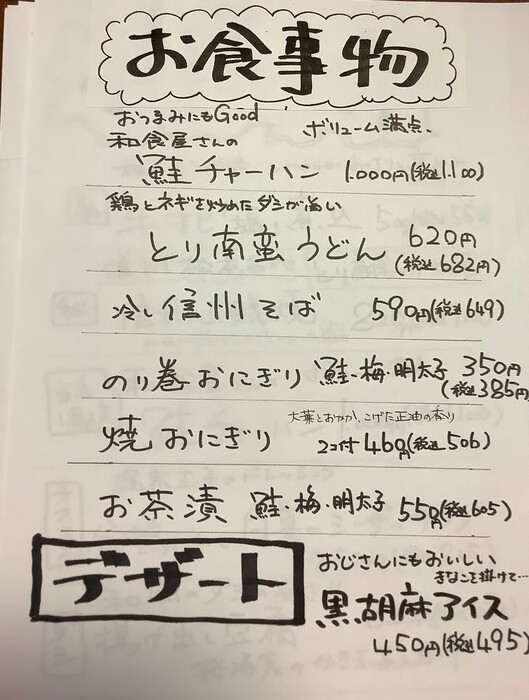 お食事物
おつまみにもGood
和食屋さんの ボリューム満点、
鮭チャーハン 1.000円(税込1.100)
鶏とネギを炒めたダシが旨い
とり南蛮うどん 620円
(税込682円)
冷し信州そば 590円(税込649)
のり巻おにぎり 鮭・梅・明太子 350円
(税込385円)
大葉とおかか、こげた正油の香り
焼おにぎり 2コ付460円(税込506)
お茶漬 鮭・梅・明太子 550円(税込605)
デザート
おじさんにもおいしい
きなこを掛けて…
黒胡麻アイス
450円(税込495)